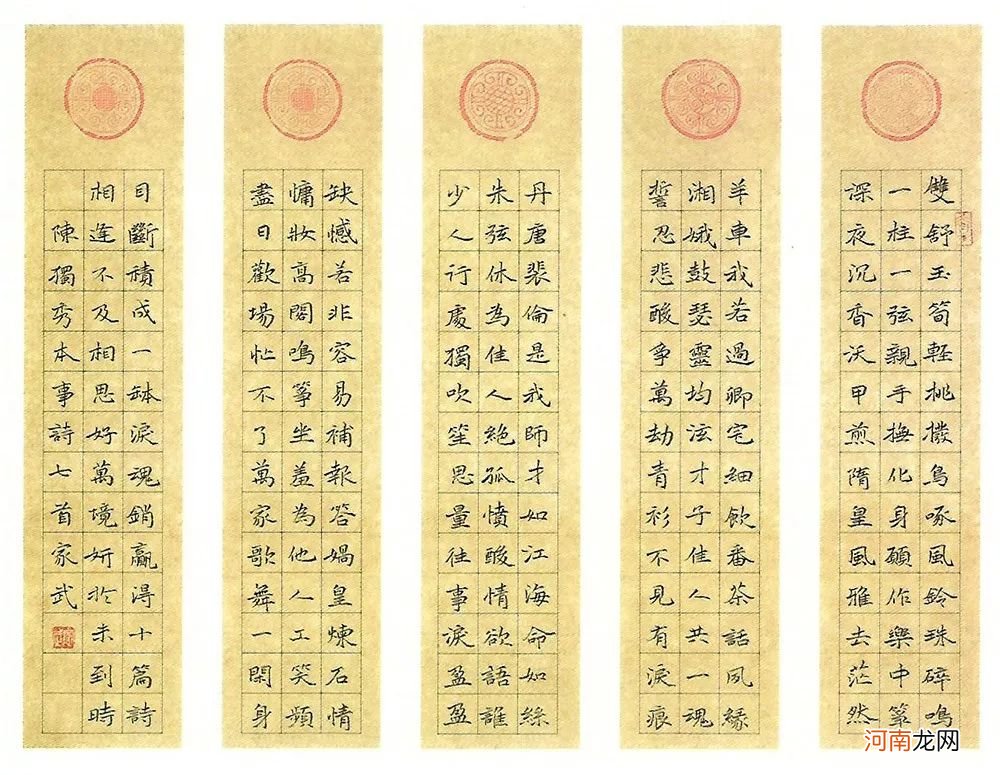 雙舒玉筍輕挑撥鳥啄風鈴珠碎鳴
一柱一弦親手撫化身願作樂中箏
深夜沉香沃甲煎隋皇風雅去茫然
羊車我若過卿宅細飲番茶話夙緣
湘娥鼓瑟靈均泫才子佳人共一魂
誓忍悲酸爭萬劫青衫不見有淚痕
丹唐裴倫是我師才如江海命如絲
朱弦休為佳人絕孤憤酸情欲語誰
少人行處獨吹笙思量往事淚盈盈
缺憾若非容易補報答媧皇煉石情
慵妝高閣鳴箏坐羞為他人工笑頻
盡日歡場忙不了萬家歌舞一閑身
目斷積成一缽淚魂銷贏得十篇詩
相逢不及相思好萬境妍於未到時
陳獨秀本事詩七首家武
河南龙网